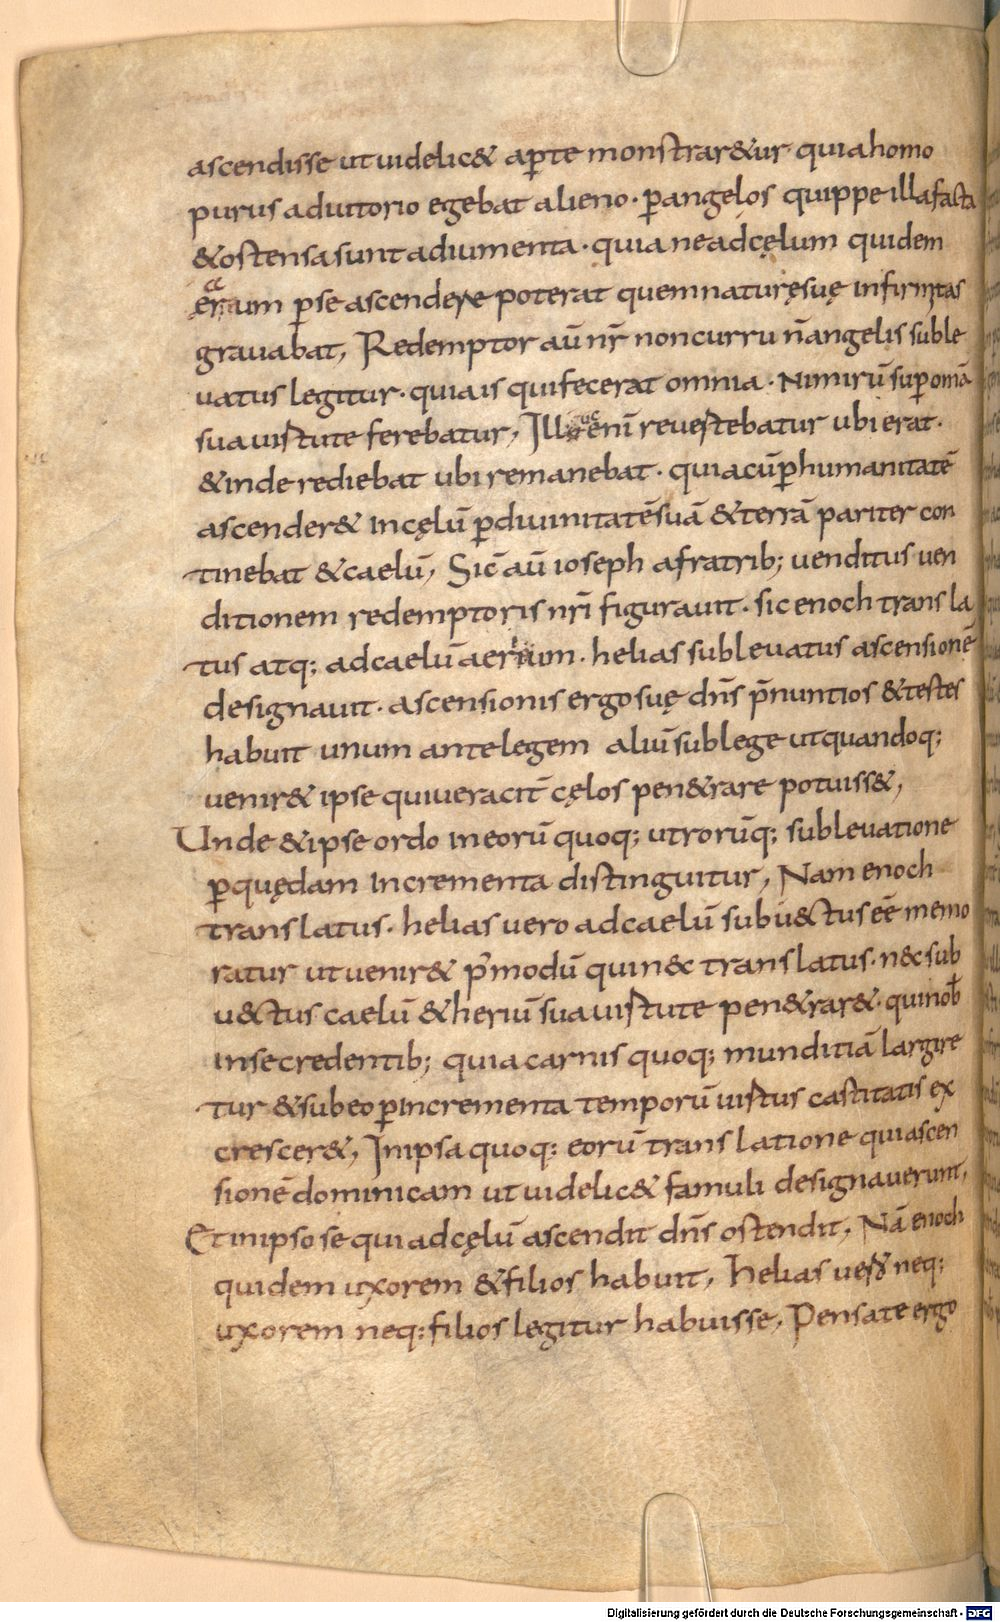 ascendisse ut uidelic& aperte monstrar&ur quia homo
purus adiutorio egebat alieno · p̄ angelos quippe illa facta
& ostensa sunt adiumenta · quia ne ad cęlum quidem
aerium p̄ se ascendere poterat quem naturę suę infirmitas
grauabat, Redemptor aū nr̄ non curru n̄ angelis suble
uatus legitur · quia is qui fecerat omnia · nimirū sup̄ omā
sua uirtute ferebatur, Illuc enī reuertebatur ubi erat ·
& inde rediebat ubi remanebat · quia cū p̄ humanitatē
ascender& in cęlū p̄ diuinitatē suā & terrā pariter con
tinebat & caelū, Sic̄ aū ioseph a fratrib; uenditus uen
ditionem redemptoris nr̄i figurauit · sic enoch trans la
tus atq; ad caelū aerium · helias subleuatus ascensionē
designauit · ascensionis ergo suę dn̄s p̄nuntios & testes
habuit unum ante legem aliū sub lege ut quandoq;
uenir& ipse qui ueracit̄ cęlos pen&rare potuiss&,
Unde & ipse ordo in eorū quoq; utrorūq; subleuatione
p̄ quędam incrementa distinguitur, Nam enoch
trans latus · helias uero ad caelū subu&ctus eē memo
ratur ut uenir& p̄ modū qui n&c trans latus · n&c sub
u&ctus caelū &heriū sua uirtute pen&rar& · qui nob̄
in se credentib; quia carnis quoq; munditiā largire
tur & sub eo p̄ incrementa temporū uirtus castitatis ex
crescer&, In ipsa quoq; eorū trans latione qui ascen
sionē dominicam ut uidelic& famuli designauerunt,
Et in ipso se qui ad cęlū ascendit dn̄s ostendit, Nā enoch
quidem uxorem & filios habuit, Helias uero neq;
uxorem neq; filios legitur habuisse, Pensate ergo
Digitalisierung gefördert durch die Deutsche Forschungsgemeinschaft - DFG